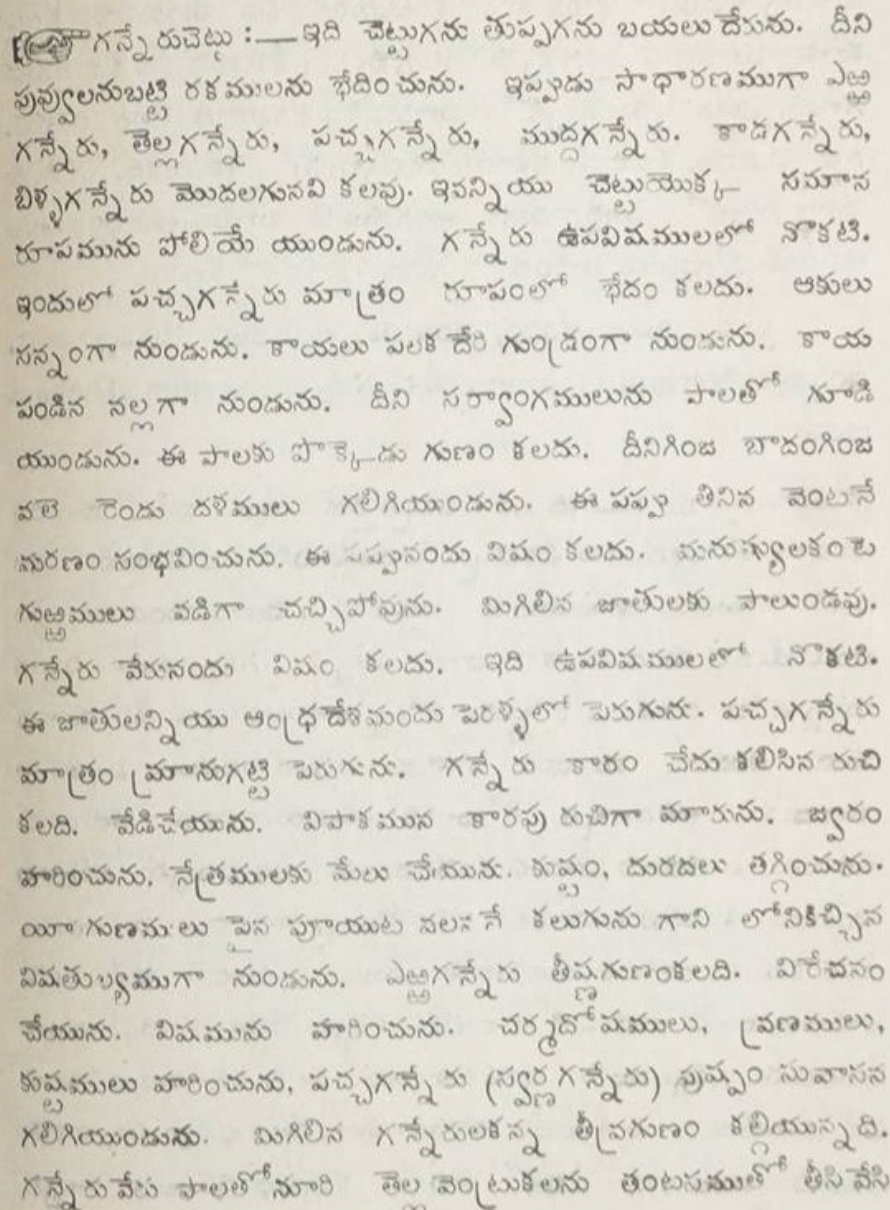 గన్నేరుచెట్టు :— ఇది చెట్టుగను తుప్పగను బయలు దేరును. దీని
పువ్వులనుబట్టి రకములను భేదించును. ఇప్పుడు సాధారణముగా ఎఱ్ఱ
గన్నేరు, తెల్లగన్నేరు, పచ్చగన్నేరు, ముద్దగన్నేరు. కాడగన్నేరు,
బిళ్ళగన్నేరు మొదలగునవి కలవు. ఇవన్నియు చెట్టుయొక్క సమాన
రూపమును పోలియే యుండును. గన్నేరు ఉపవిషములలో నొకటి.
ఇందులో పచ్చగన్నేరు మాత్రం రూపంలో భేదం కలదు. ఆకులు
సన్నంగా నుండును. కాయలు పలక దేరి గుండ్రంగా నుండును. కాయ
పండిన నల్లగా నుండును. దీని సర్వాంగములును పాలతో గూడి
యుండును. ఈ పాలకు పొక్కెడు గుణం కలదు. దీనిగింజ బాదంగింజ
వలె రెండు దళములు గలిగియుండును. ఈ పప్పు తినిన వెంటనే
మరణం సంభవించును. ఈ పప్పునందు విషం కలదు. మనుష్యులకంటె
గుఱ్ఱములు వడిగా చచ్చిపోవును. మిగిలిన జాతులకు పాలుండవు.
గన్నేరు వేరునందు విషం కలదు. ఇది ఉపవిషములలో నొకటి.
ఈ జాతులన్నియు ఆంధ్రదేశమందు పెరళ్ళలో పెరుగును. పచ్చగన్నేరు
మాత్రం మ్రానుగట్టి పెరుగును. గన్నేరు కారం చేదు కలిసిన రుచి
కలది. వేడిచేయును. విపాకమున కారపు రుచిగా మారును. జ్వరం
హరించును. నేత్రములకు మేలు చేయును. కుష్టం, దురదలు తగ్గించును.
యీ గుణములు పైన పూయుట వలననే కలుగును గాని లోనికిచ్చిన
విషతుల్యముగా నుండును. ఎఱ్ఱగన్నేరు తీష్ణగుణంకలది. విరేచనం
చేయును. విషమును హరించును. చర్మదోషములు, వ్రణములు,
కుష్టములు హరించును, పచ్చగన్నేరు (స్వర్ణగన్నేరు) పుష్పం సువాసన
గలిగియుండును. మిగిలిన గన్నేరులకన్న తీవ్రగుణం కల్గియున్నది.
గన్నేరువేరు పాలతోనూరి తెల్ల వెంట్రుకలను తంటసముతో తీసివేసి